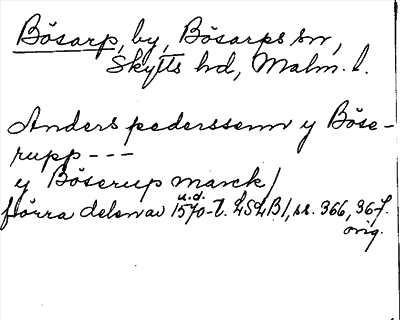 Bösarp, by, Bösarps sn,
Skytts hd, Malm. l.
Anders pederssenn y Böse-
rupp ---
y Böserup marck/
förra delen av 1570-t. LSLB1, ss. 366, 367.
u.d.
orig.